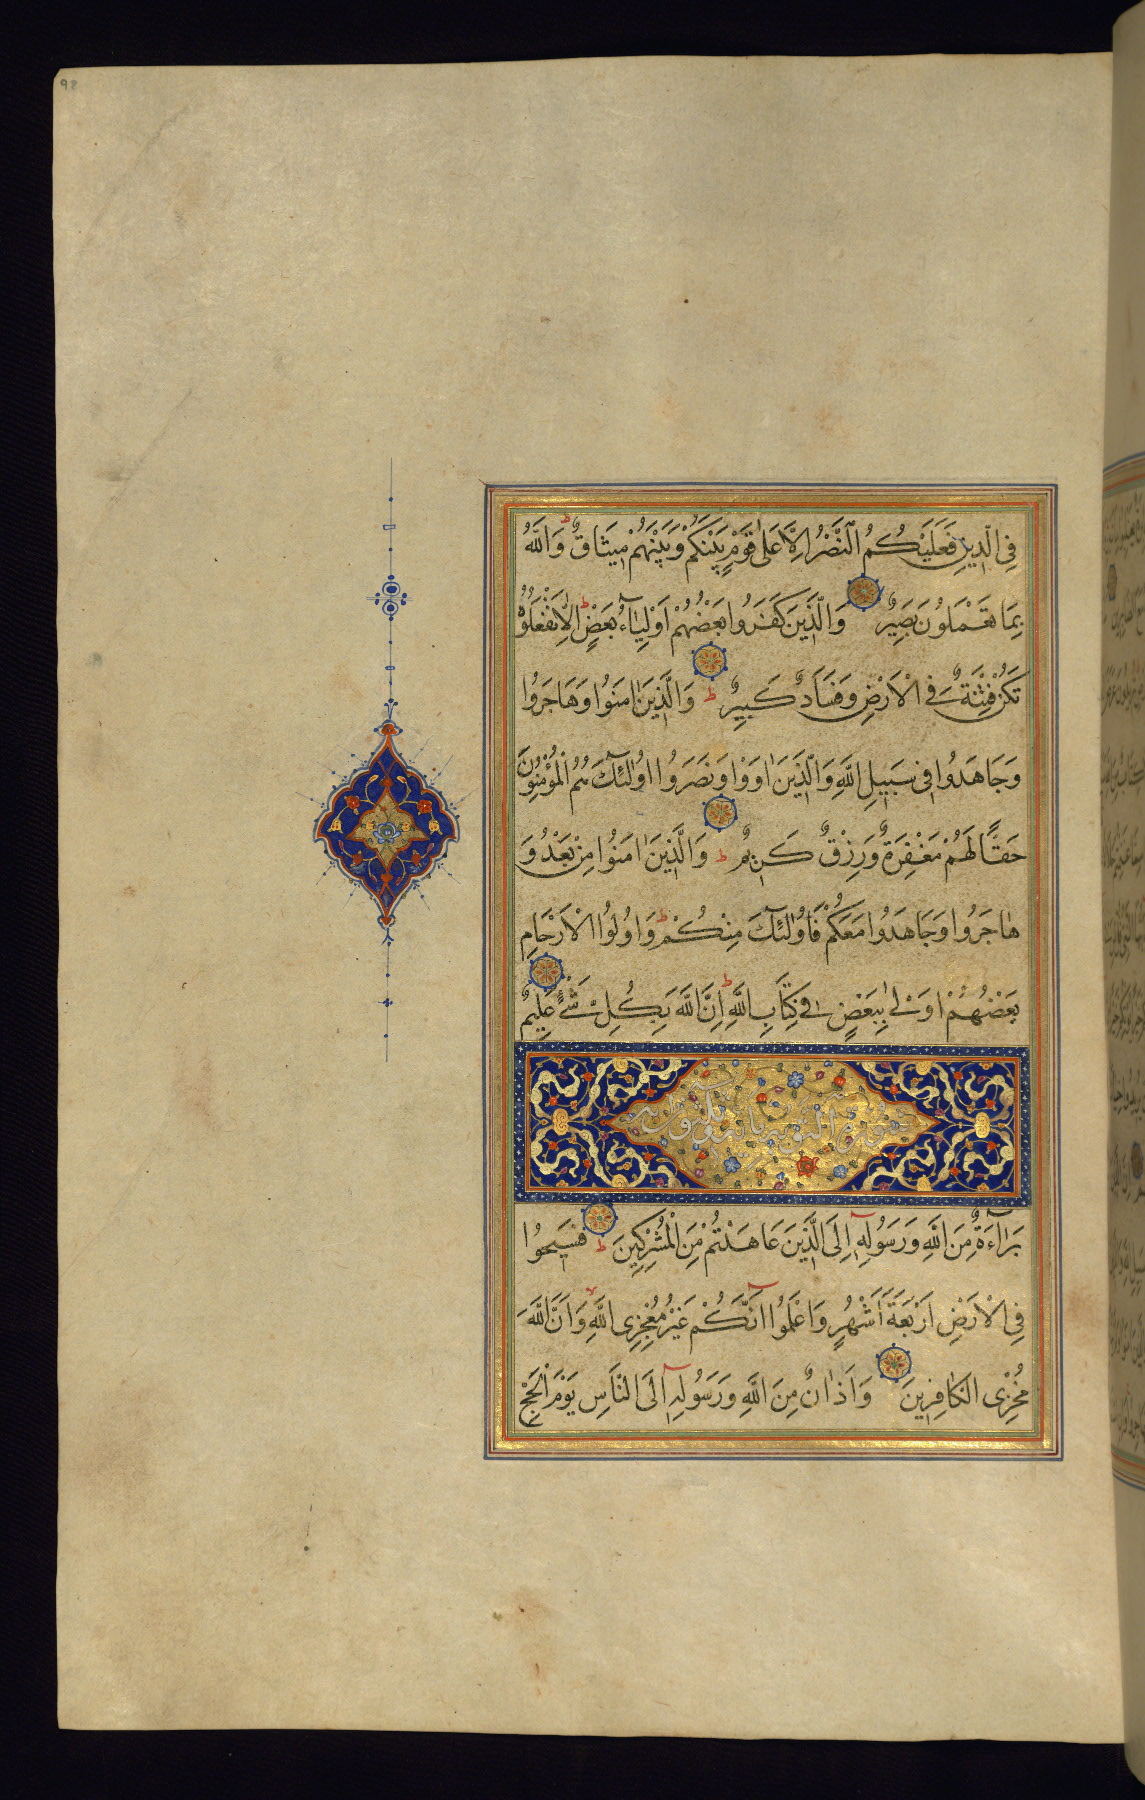 98
فِي الدِّينِ فَعَلَيْكُمُ النَّصْرُ إِلَّا عَلَىٰ قَوْمٍ بَيْنَكُمْ وَبَيْنَهُمْ مِيثَاقٌ ط وَاللَّهُ
بِمَا تَعْمَلُونَ بَصِيرٌ وَالَّذِينَ كَفَرُوا بَعْضُهُمْ أَوْلِيَاءُ بَعْضٍ ط إِلَّا تَفْعَلُوهُ
تَكُنْ فِتْنَةٌ فِي الْأَرْضِ وَفَسَادٌ كَبِيرٌ ط وَالَّذِينَ اٰمَنُوا وَهَاجَرُوا
وَجَاهَدُوا فِي سَبِيلِ اللَّهِ وَالَّذِينَ اٰوَوْا وَنَصَرُوا اُولٰئِكَ هُمُ الْمُؤْمِنُونَ
حَقًّا لَهُمْ مَغْفِرَةٌ وَرِزْقٌ كَرِيمٌ ط وَالَّذِينَ اٰمَنُوا مِنْ بَعْدُ وَ
هَاجَرُوا وَجَاهَدُوا مَعَكُمْ فَاُولٰئِكَ مِنْكُمْ ط وَاُولُوا الْاَرْحَامِ
بَعْضُهُمْ اَوْلٰى بِبَعْضٍ فِي كِتَابِ اللَّهِ ط اِنَّ اللَّهَ بِكُلِّ شَيْءٍ عَلِيمٌ
سورة التوبة مائة و
بَرَاءَةٌ مِنَ اللَّهِ وَرَسُولِهِ اِلَى الَّذِينَ عَاهَدْتُمْ مِنَ الْمُشْرِكِينَ ط فَسِيحُوا
فِي الْاَرْضِ اَرْبَعَةَ اَشْهُرٍ وَاعْلَمُوا اَنَّكُمْ غَيْرُ مُعْجِزِي اللَّهِ لا وَاَنَّ اللَّهَ
مُخْزِي الْكَافِرِينَ وَاَذَانٌ مِنَ اللَّهِ وَرَسُولِهِ اِلَى النَّاسِ يَوْمَ الْحَجِّ